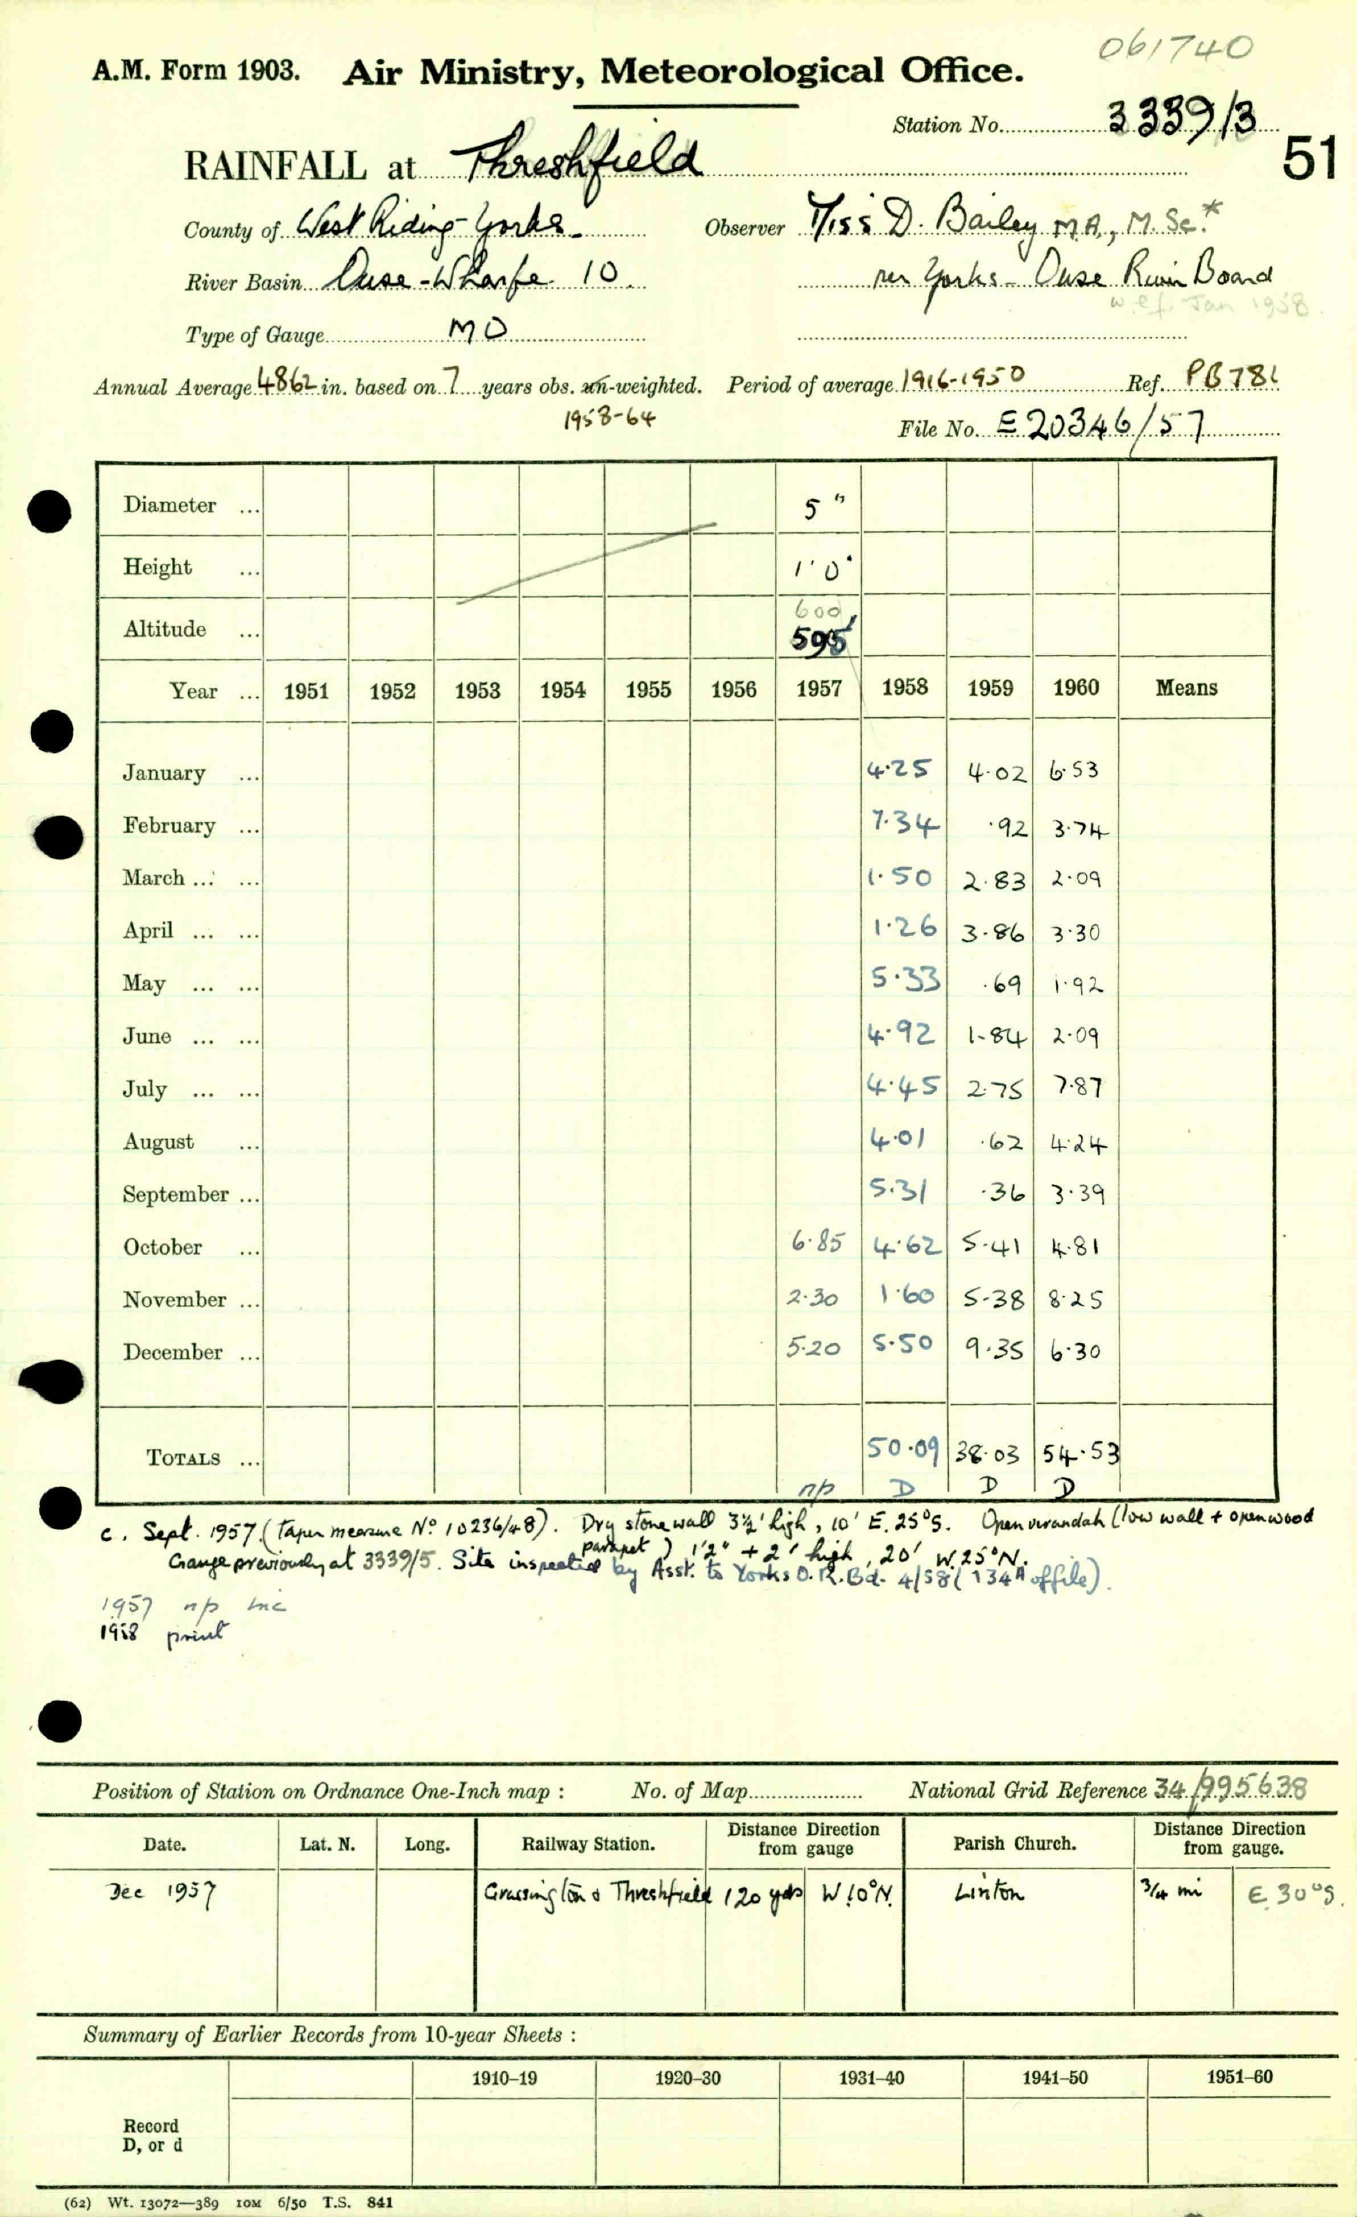 061740
A.M. Form 1903. Air Ministry, Meteorological Office.
Station No. 3339/3
51
RAINFALL at Threshfield
County of West Riding - Yorks - Observer Miss D. Bailey M.A., M.Sc.*
River Basin Ouse - Wharfe 10. per Yorks - Ouse River Board
w.e.f. Jan 1958.
Type of Gauge MO
Annual Average 4862 in. based on 7 years obs. un-weighted. Period of average 1916-1950 Ref. PB781
1958-64
File No. E20346/57
Diameter ... 5"
Height ... 1' 0"
600
Altitude ... 595'
Year ... 1951 1952 1953 1954 1955 1956 1957 1958 1959 1960 Means
January ... 4.25 4.02 6.53
February ... 7.34 .92 3.74
March ... ... 1.50 2.83 2.09
April ... ... 1.26 3.86 3.30
May ... ... 5.33 .69 1.92
June ... ... 4.92 1.84 2.09
July ... ... 4.45 2.75 7.87
August ... 4.01 .62 4.24
September ... 5.31 .36 3.39
October ... 6.85 4.62 5.41 4.81
November ... 2.30 1.60 5.38 8.25
December ... 5.20 5.50 9.35 6.30
TOTALS ... 50.09 38.03 54.53
np D D D
c. Sept. 1957. (taper measure No 10236/48). Dry stone wall 3½' high, 10' E.25°S. Open verandah (low wall + open wood
parapet) 1'2" + 2' high, 20' W.25°N.
Gauge previously at 3339/5. Site inspected by Asst. to Yorks O.R.Bd. 4/58 (134A of file).
1957 np inc
1958 print
Position of Station on Ordnance One-Inch map : No. of Map National Grid Reference 34/995638
Date. Lat. N. Long. Railway Station. Distance Direction from gauge Parish Church. Distance Direction from gauge.
Dec 1957 Grassington & Threshfield 120 yds W.10°N. Linton ¾ mi E.30°S.
Summary of Earlier Records from 10-year Sheets :
1910–19 1920–30 1931–40 1941–50 1951–60
Record
D, or d
(62) Wt. 13072—389 10M 6/50 T.S. 841